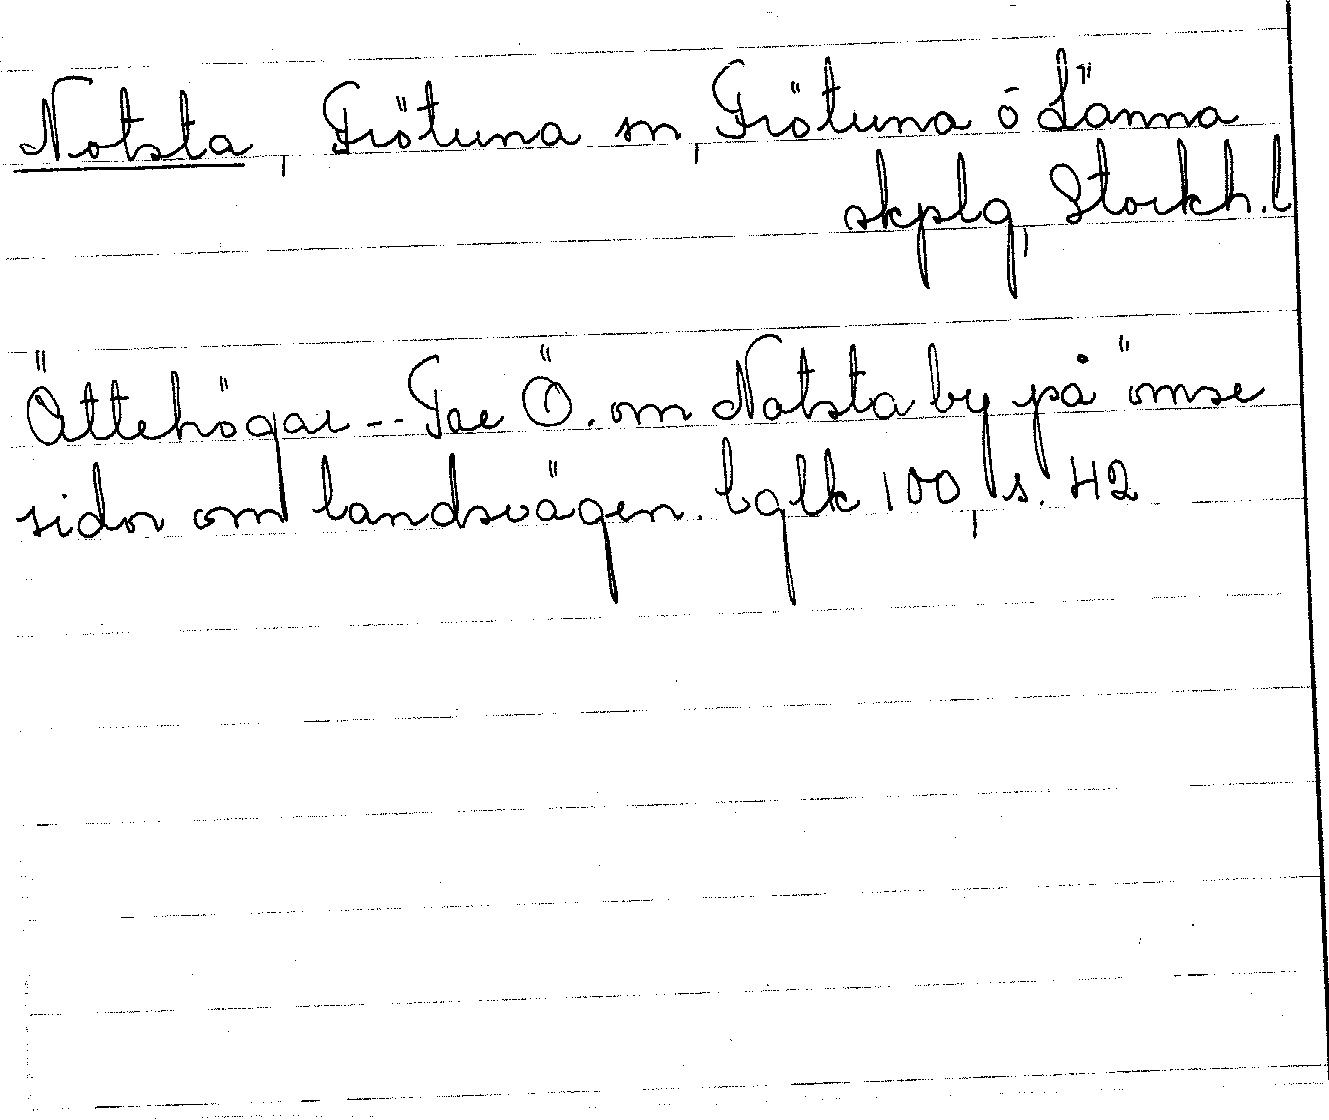 Notsta, Frötuna sn, Frötuna o Länna
skplg, Stockh.l
Ättehögar -- Ö. om Notsta by på ömse
sidor om landsvägen. bglk 100, s. 42